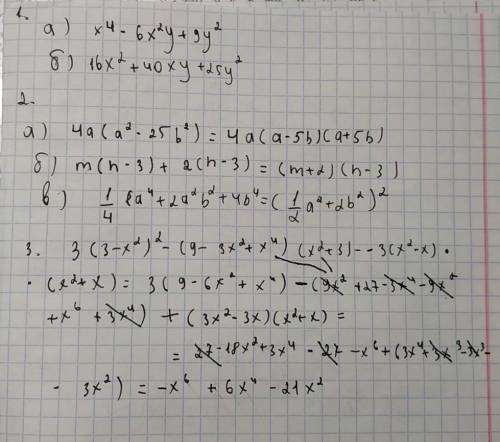 1.
а) x⁴ - 6x²y + 9y²
б) 16x² + 40xy + 25y²
2.
а) 4a(a² - 25b²) = 4a(a-5b)(a+5b)
б) m(n-3) + 2(n-3) = (m+2)(n-3)
в) 1/4 a⁴ + 2a²b² + 4b⁴ = (1/2 a² + 2b²)²
3. 3(3-x²)² - (9 - 3x² + x⁴)(x²+3) - - 3(x²-x) ·
· (x²+x) = 3(9 - 6x² + x⁴) - (9x² + 27 - 3x⁴ - 9x²
+ x⁶ + 3x⁴) + (3x² - 3x)(x²+x) =
= 27 - 18x² + 3x⁴ - 27 - x⁶ + (3x⁴ + 3x³ - 3x³ -
- 3x²) = -x⁶ + 6x⁴ - 21x²